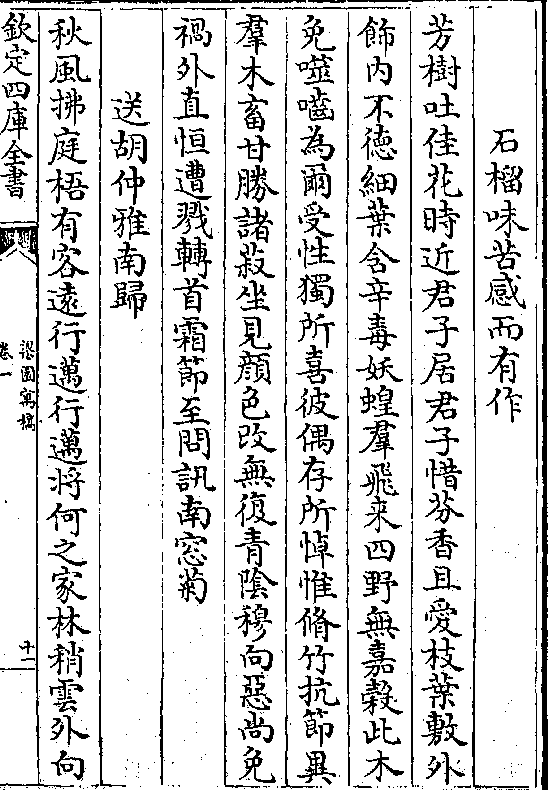 石榴味苦感而有作
芳樹吐佳花時近君子居君子惜芬香且愛枝葉敷外
飾内不徳細葉含辛毒妖蝗羣飛来四野無嘉穀此木
免噬嚙為爾受性獨所喜彼偶存所悼惟脩竹抗節異
羣木畜甘勝諸蔌坐見顔色改無復青陰穆向惡尚免
禍外直恒遭戮轉首霜節至問訊南窓菊
送胡仲雅南歸
秋風拂庭梧有客遠行邁行邁將何之家林稍雲外向
欽定四庫全書
梁園寓稿
卷一
十一